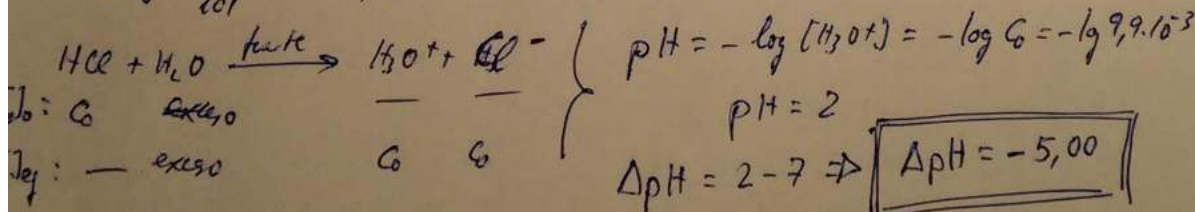 101
HCl + H₂O —fuerte→ H₃O⁺ + Cl⁻
]₀: C₀ exceso — —
]eq: — exceso C₀ C₀
pH = - log [H₃O⁺] = - log C₀ = - lg 9,9·10⁻³
pH = 2
ΔpH = 2 - 7 ⇒ ΔpH = - 5,00